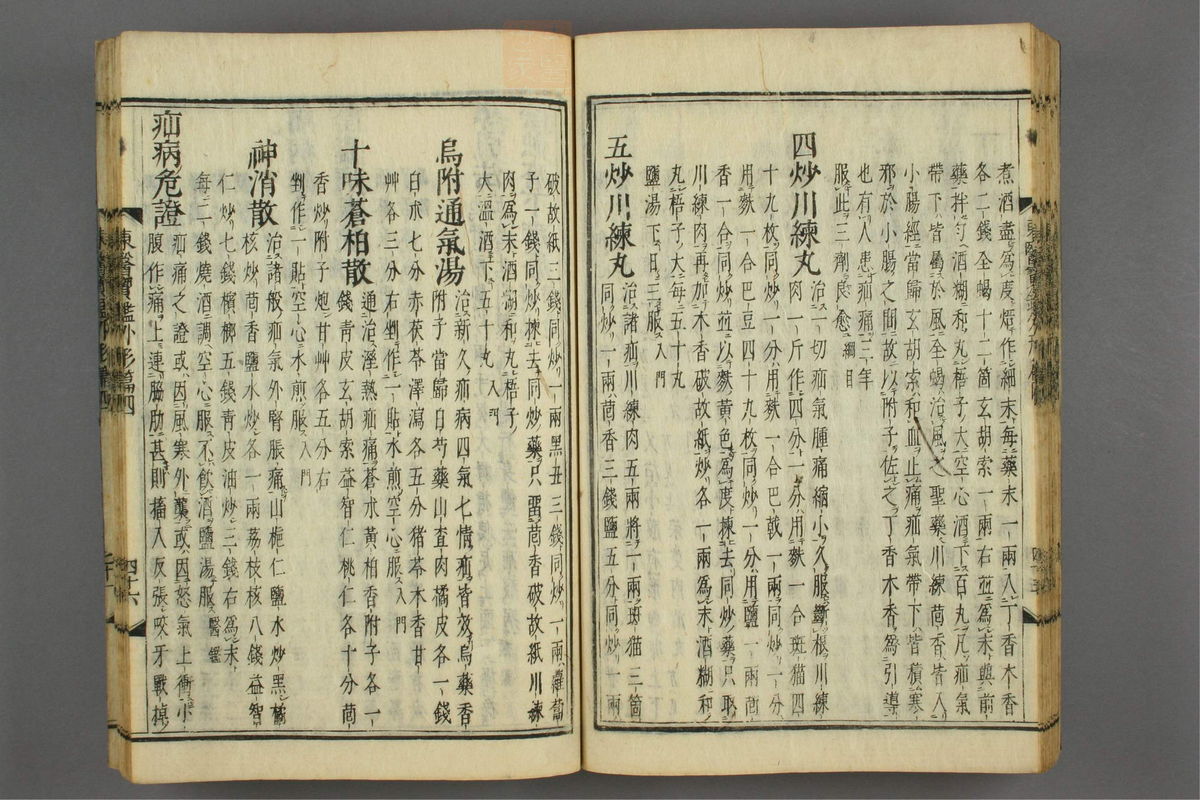 煮酒盡爲度焙作細末每藥末一兩入丁香木香
各二錢全蝎十二箇玄胡索一兩右並爲末與前
藥拌勻酒糊和丸梧子大空心酒下百丸凡疝氣
帶下皆屬於風全蝎治風之聖藥川練茴香皆入
小腸經當歸玄胡索和血止痛疝氣帶下皆積寒
邪於小腸之間故以附子佐之丁香木香爲引導
也有人患疝痛三年
服此三劑良愈 綱目
四炒川練丸 治一切疝氣腫痛縮小久服斷根川練
肉一斤作四分一分用麩一合斑猫四
十九枚同炒一分用麩一合巴戟一兩同炒一分
用麩一合巴豆四十九枚同炒一分用鹽一兩茴
香一合同炒並以麩黃色爲度揀去同炒藥只取
川練肉再加木香破故紙炒各一兩爲末酒糊和
丸梧子大每五十丸
鹽湯下日三服 入門
五炒川練丸 治諸疝川練肉五兩將一兩斑猫三箇
同炒一兩茴香三錢鹽五分同炒一兩
破故紙三錢同炒一兩黑丑三錢同炒一兩蘿葍
子一錢同炒揀去同炒藥只留茴香破故紙川練
肉爲末酒湖和丸梧子
大溫酒下五十丸 入門
烏附通氣湯 治新久疝病四氣七情疝皆效烏藥香
附子當歸白芍藥山査肉橘皮各一錢
白朮七分赤茯苓澤瀉各五分猪苓木香甘
艸各三分右剉作一貼水煎空心服 入門
十味蒼柏散 通治溼熱疝痛蒼朮黃柏香附子各一
錢青皮玄胡索益智仁桃仁各十分茴
香炒附子炮甘艸各五分右
剉作一貼空心水煎服 入門
神消散 治諸般疝氣外腎脹痛山梔仁鹽水炒黑橘
核炒茴香鹽水炒各一兩荔枝核八錢益智
仁炒七錢檳榔五錢青皮油炒三錢右爲末
每二錢燒酒調空心服不飲酒鹽湯服 醫鑑
疝病危證 疝痛之證或因風寒外襲或因怒氣上衝小
腹作痛上連脇肋甚則搐入反張咬牙戰掉
東醫寶鑑外形篇四
四十六